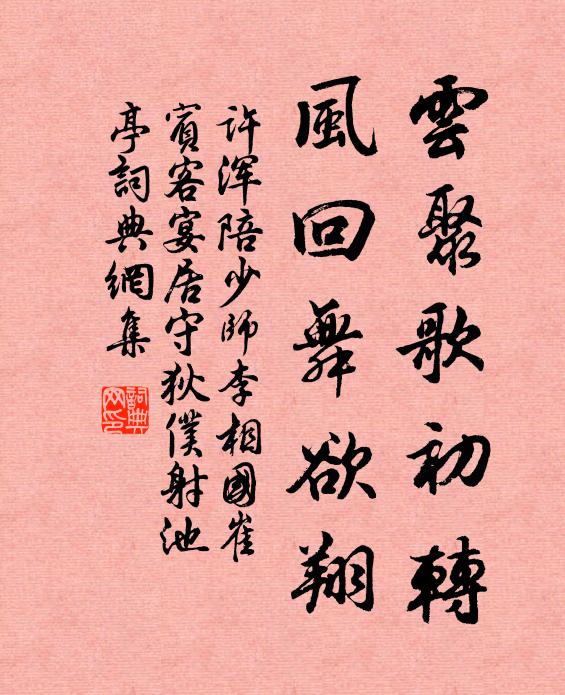 雲聚歌初轉
風回舞欲翔
许渾陪少師李相國崔
賓客宴居守狄僕射池
亭詞典網集
詞典网印